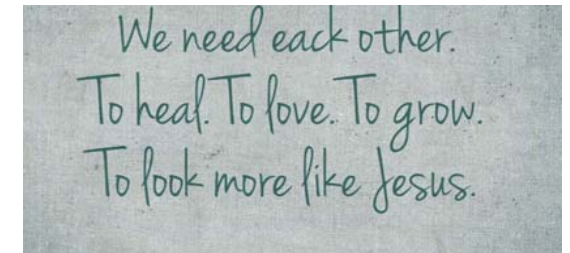 We need each other.
To heal. To love. To grow.
To look more like Jesus.